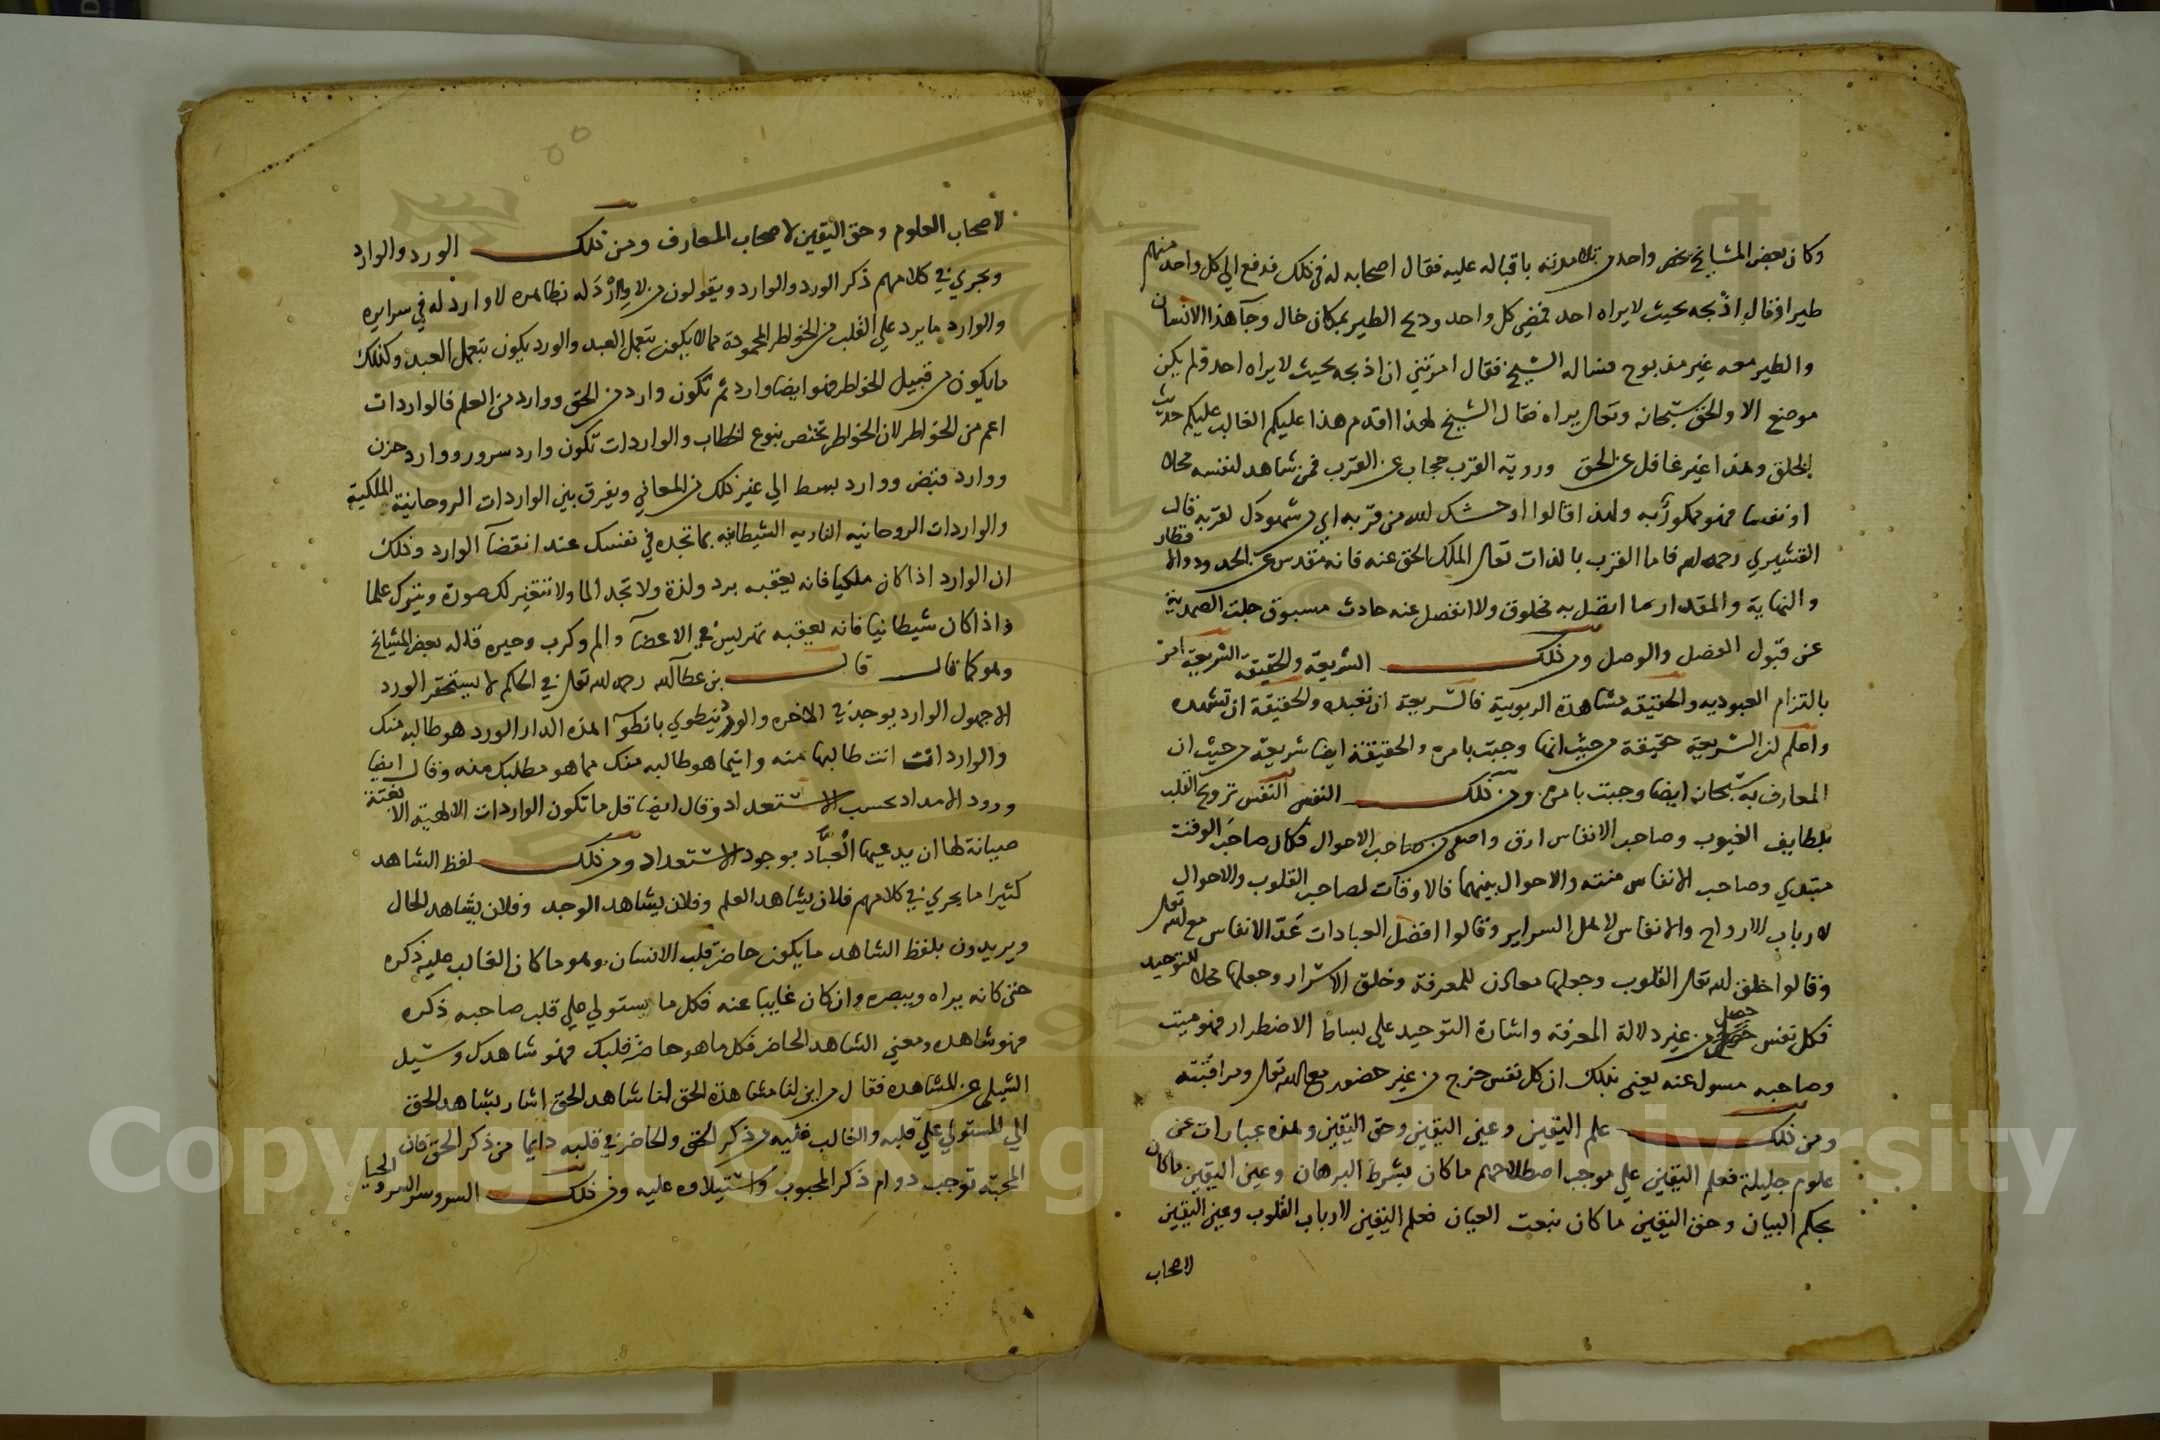 وكان بعض المشايخ يخص واحد من تلامذته باقباله عليه فقال اصحابه له في ذلك فدفع الي كل واحد منهم
طيرا وقال اذبحه بحيث لا يراه احد فمضي كل واحد وذبح الطير بمكان خال وجآ هذا الانسان
والطير معه غير مذبوح فساله الشيخ فقال امرتني ان اذبحه بحيث لا يراه احد ولم يكن
موضع الا والحق سبحانه وتعالى يراه فقال الشيخ لهذا اقدم هذا عليكم الغالب عليكم حديث
الخلق وهذا غير غافل عن الحق ورويه القرب حجاب عن القرب فمن شاهد لنفسه محلا
او نفسا فهو ممكور به ولهذا قالوا اوحشك الله من قربه اي من شهودك لقربه قال
القشيري رحمه الله فاما القرب بالذات تعالى الملك الحق عنه فانه مقدس عن الحدود والاقطار
والنهاية والمقدار ما اتصل به مخلوق ولا انفصل عنه حادث مسبوق جلت الصمدية
عن قبول الفصل والوصل ومن ذلك الشريعة والحقيقة الشريعة امر
بالتزام العبوديه والحقيقه مشاهدة الربوبية فالشريعة ان تعبده والحقيقة ان تشهده
واعلم ان الشريعة حقيقة من حيث انها وجبت بامره والحقيقة ايضا شريعة من حيث ان
المعارف به سبحانه ايضا وجبت بامره ومن ذلك النفس النفس ترويح القلب
بلطايف الغيوب وصاحب الانفاس ارق واصفي من صاحب الاحوال فكان صاحب الوقت
مبتدي وصاحب الانفاس منته والاحوال بينهما فالاوقات لصاحب القلوب والاحوال
لارباب الارواح والانفاس لاهل السراير وقالوا افضل العبادات عد الانفاس مع الله تعالى
وقالوا خلق الله تعالى القلوب وجعلها معادن للمعرفة وخلق الاسرار وجعلها محلا للتوحيد
فكل نفس حصل من غير دلالة المعرفة واشارة التوحيد علي بساط الاضطرار فهو ميت
وصاحبه مسول عنه يعني بذلك ان كل نفس خرج من غير حضور مع الله تعالى ومراقبته
ومن ذلك علم اليقين وعين اليقين وحق اليقين وهذه عبارات عن
علوم جليلة فعلم اليقين علي موجب اصطلاحهم ما كان بشرط البرهان وعين اليقين ما كان
بحكم البيان وحق اليقين ما كان بنعت العيان فعلم اليقين لارباب القلوب وعين اليقين
لاصحاب
لاصحاب العلوم وحق اليقين لاصحاب المعارف ومن ذلك الورد والوارد
ويجري في كلامهم ذكر الورد والوارد ويقولون من لا ورد له بظاهره لا وارد له في سرايره
والوارد ما يرد علي القلب من الخواطر المحمودة مما لا يكون بتعمل العبد والورد يكون بتعمل العبد وكذلك
ما يكون من قبيل الخواطر فهو ايضا وارد ثم تكون وارد من الحق ووارد من العلم فالواردات
اعم من الخواطر لان الخواطر تختص بنوع الخطاب والواردات تكون وارد سرور ووارد حزن
ووارد قبض ووارد بسط الي غير ذلك من المعاني ويفرق بين الواردات الروحانية الملكية
والواردات الروحانيه الناريه الشيطانيه بما تجده في نفسك عند انقضآ الوارد وذلك
ان الوارد اذا كان ملكيا فانه يعقبه برد ولذة ولا تجد الما ولا تتغير لك صورة ويترك علما
واذا كان شيطانيا فانه يعقبه تهريس في الاعضآ والم وكرب وحيره قاله بعض المشايخ
وهو كما قال قال بن عطآ الله رحمه الله تعالى في الحكم لا يستحقر الورد
الا جهول الوارد يوجد في الاخره والورد ينطوي بانطوآ هذه الدار الورد هو طالبه منك
والوارد انت طالبها منه واينما هو طالبه منك مما هو مطلبك منه وقال ايضا
ورود الامداد بحسب الاستعداد وقال ايضا قل ما تكون الواردات الالهية الا بغتة
صيانة لها ان يدعيها العباد بوجود الاستعداد ومن ذلك لفظ الشاهد
كثيرا ما يجري في كلامهم فلان يشاهد العلم وفلان يشاهد الوجد وفلان يشاهد الحال
ويريدون بلفظ الشاهد ما يكون حاضر قلب الانسان وهو ما كان الغالب عليه ذكره
حتى كانه يراه ويبصره وان كان غايبا عنه فكل ما يستولي علي قلب صاحبه ذكره
فهو شاهده ومعني الشاهد الحاضر فكل ما هو حاضر قلبك فهو شاهدك وسيل
الشبلي عن المشاهده فقال من اين لنا مشاهدة الحق لنا شاهد الحق اشار بشاهد الحق
الي المستولي علي قلبه والغالب عليه من ذكر الحق والحاضر في قلبه دايما من ذكر الحق فان
المحبه توجب دوام ذكر المحبوب واستيلاوه عليه ومن ذلك السر وسر السر